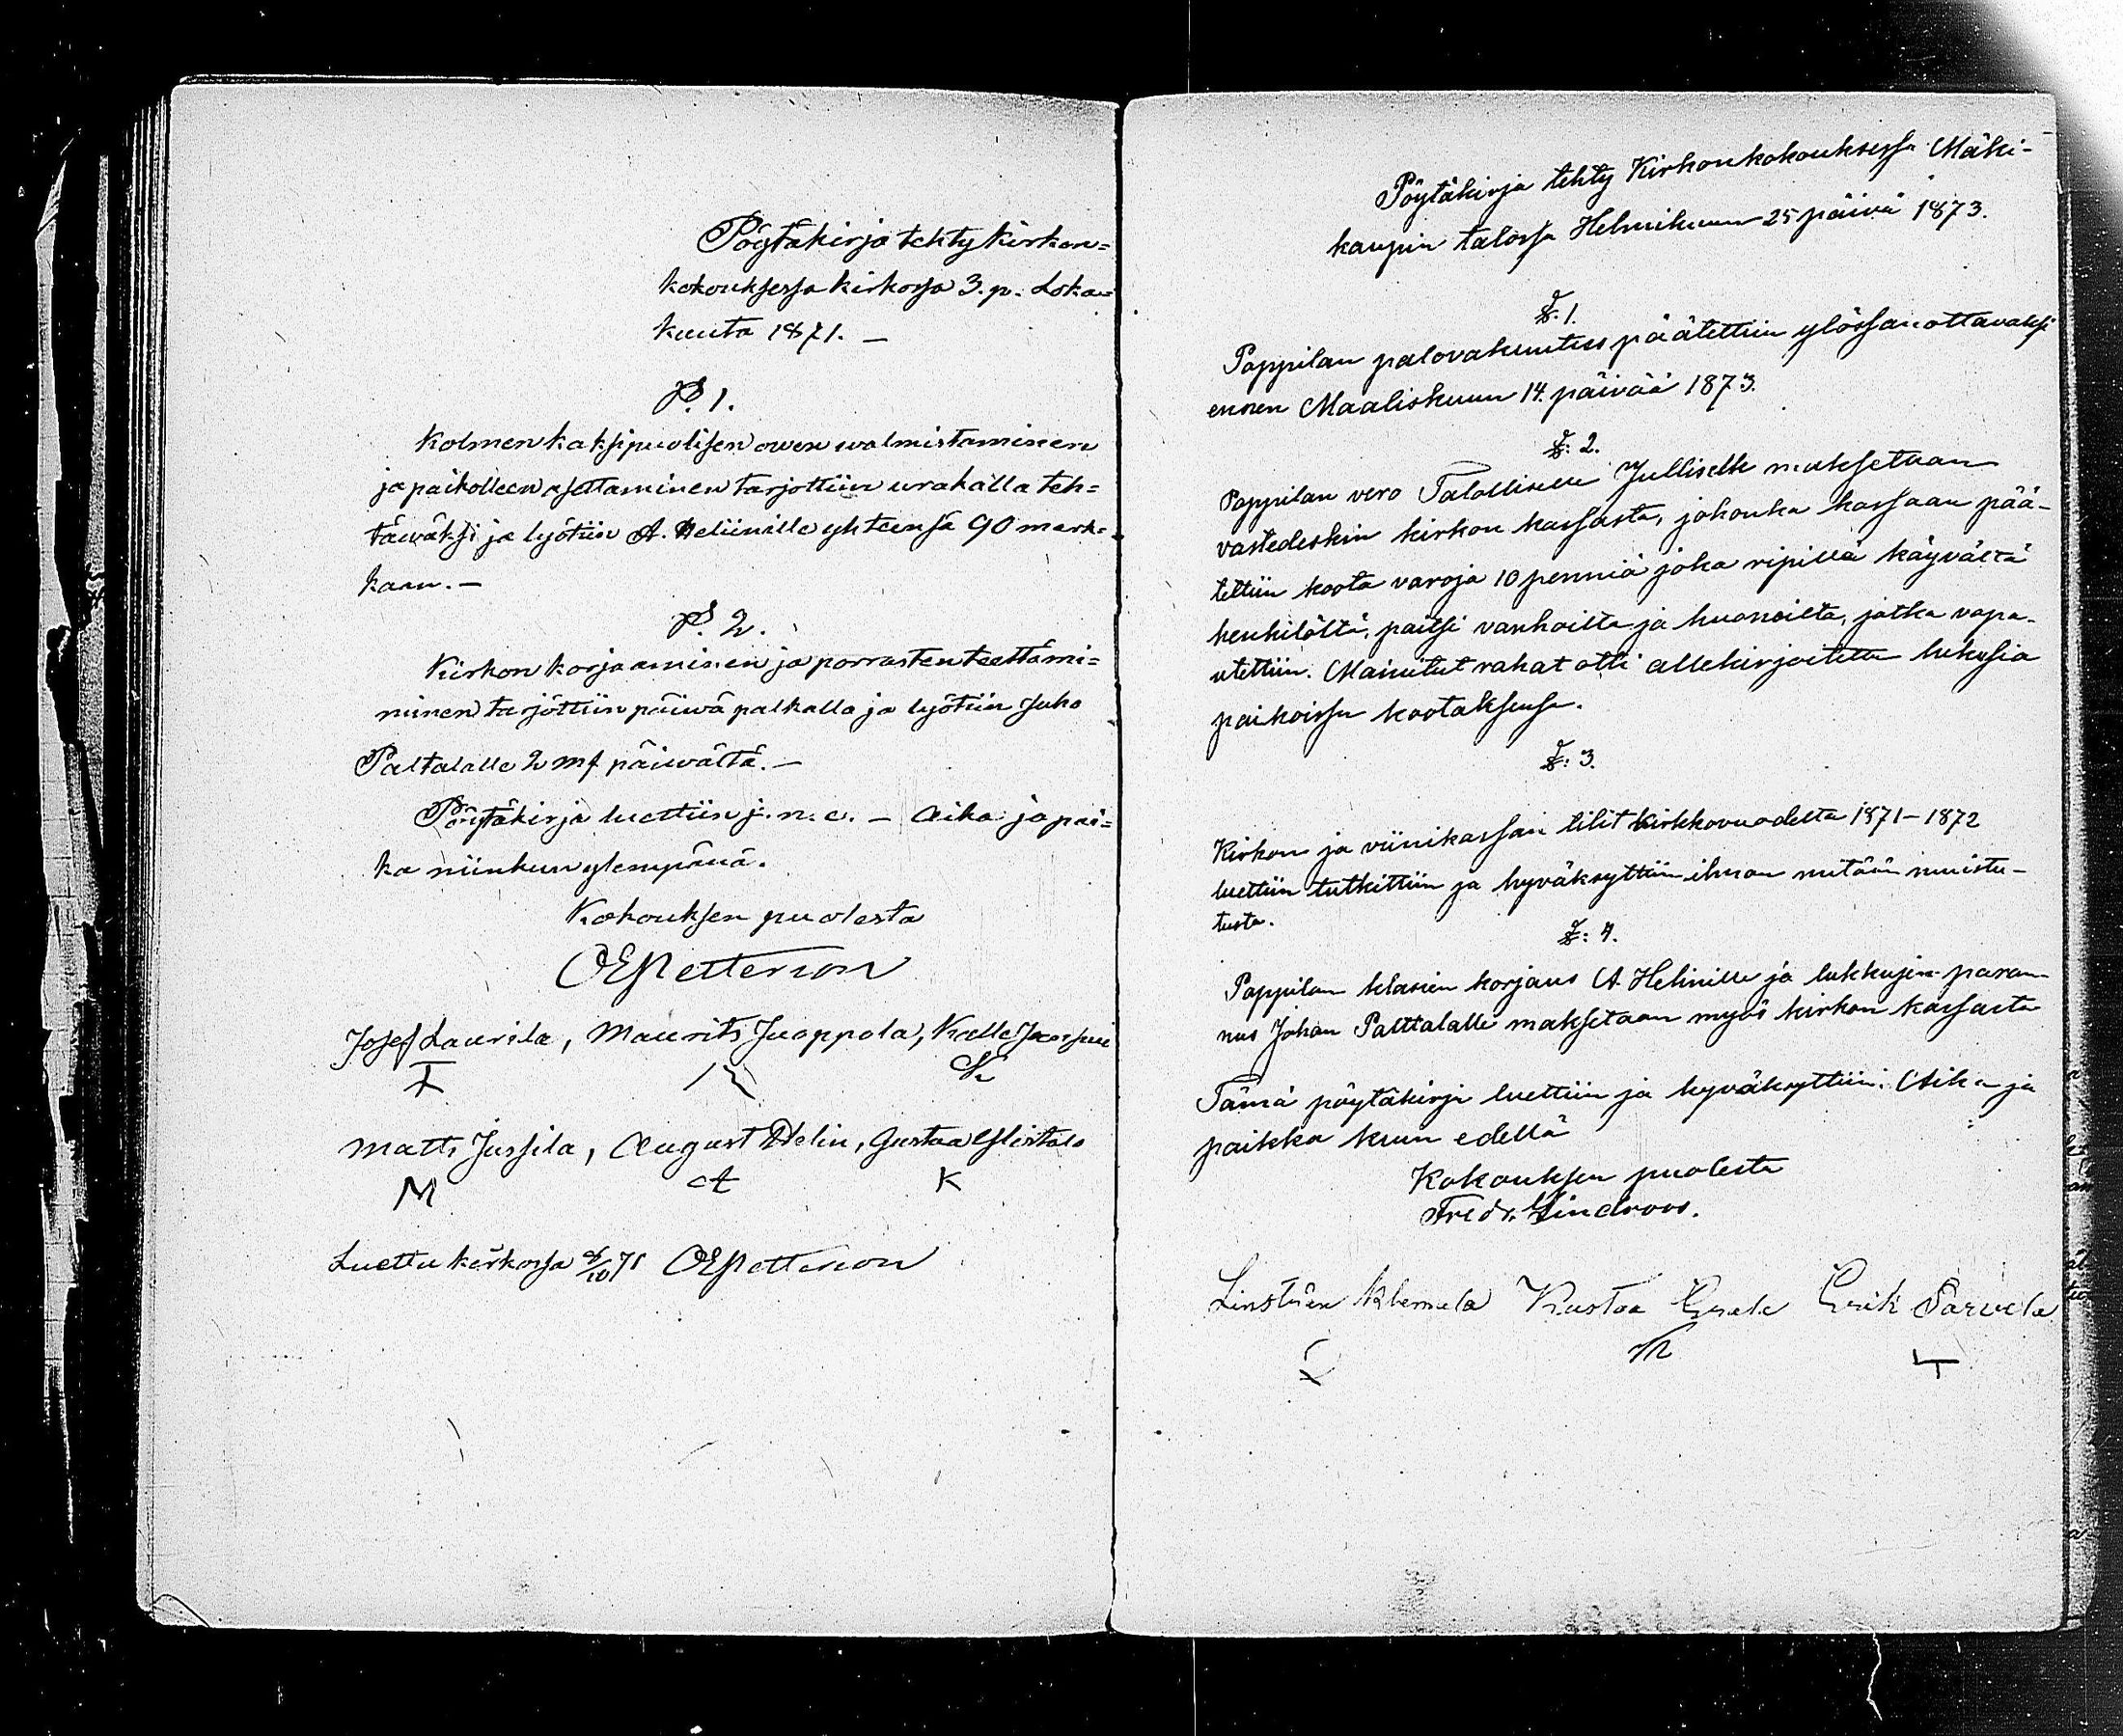 Pöytäkirja tehty Kirkon=
kokouksessa kirkossa 3. p. Loka=
kuuta 1871. —
§. 1.
Kolmen kaksipuolisen owen walmistaminen
ja paikolleen asettaminen tarjottiin urakalla teh=
täwäksi ja lyötiin A. Heliinille yhteensä 90 mark=
kaan. —
§. 2.
Kirkon korjaaminen ja porrasten teettämi=
ninen tarjottiin päiwä palkalla ja lyötiin Juho
Paltalalle 2 mk päiwältä. —
Pöytäkirja luettiin j. n. e. — Aika ja pai=
ka niinkun ylempänä.
Kokouksen puolesta
OEPetterson
Josef Laurila, Maurits Juoppola, Kalle
I K
Matts Jussila, August Helin, Gustaa Ylistalo
M A K
Luettu kirkossa 8/10 71 OEPetterson
Pöytäkirja tehty Kirkonkokouksessa Mäki-
kaupin talossa Helmikuun 25 päivä 1873.
§. 1.
Pappilan palovakuutus päätettiin ylössanottavaksi
ennen Maaliskuun 14. päivää 1873.
§: 2.
Pappilan vero Talolliselle Julliselle maksetaan
vastedeskin kirkon kassasta, johonka kassaan pää-
tettiin koota varoja 10 penniä joka ripillä käyvältä
henkilöltä, paitsi vanhoilta ja huonoilta, jotka vapa-
utettiin. Mainitut rahat otti allekirjoitettu lukusia
paikoissa kootaksensa.
§: 3.
Kirkon ja viinikassan tilit kirkkovuodelta 1871-1872
luettiin tutkittiin ja hyväksyttiin ilman mitään muistu-
tusta.
§: 4.
Pappilan klasien korjaus A. Helinille ja lukkujen paran-
nus Johan Palttalalle maksetaan myös kirkon kassasta
Tämä pöytäkirja luettiin ja hyväksyttiin. Aika ja
paikka kuin edellä
Kokouksen puolesta
Fredr. Lindroos.
Klemela Kustaa Erik Sarvela